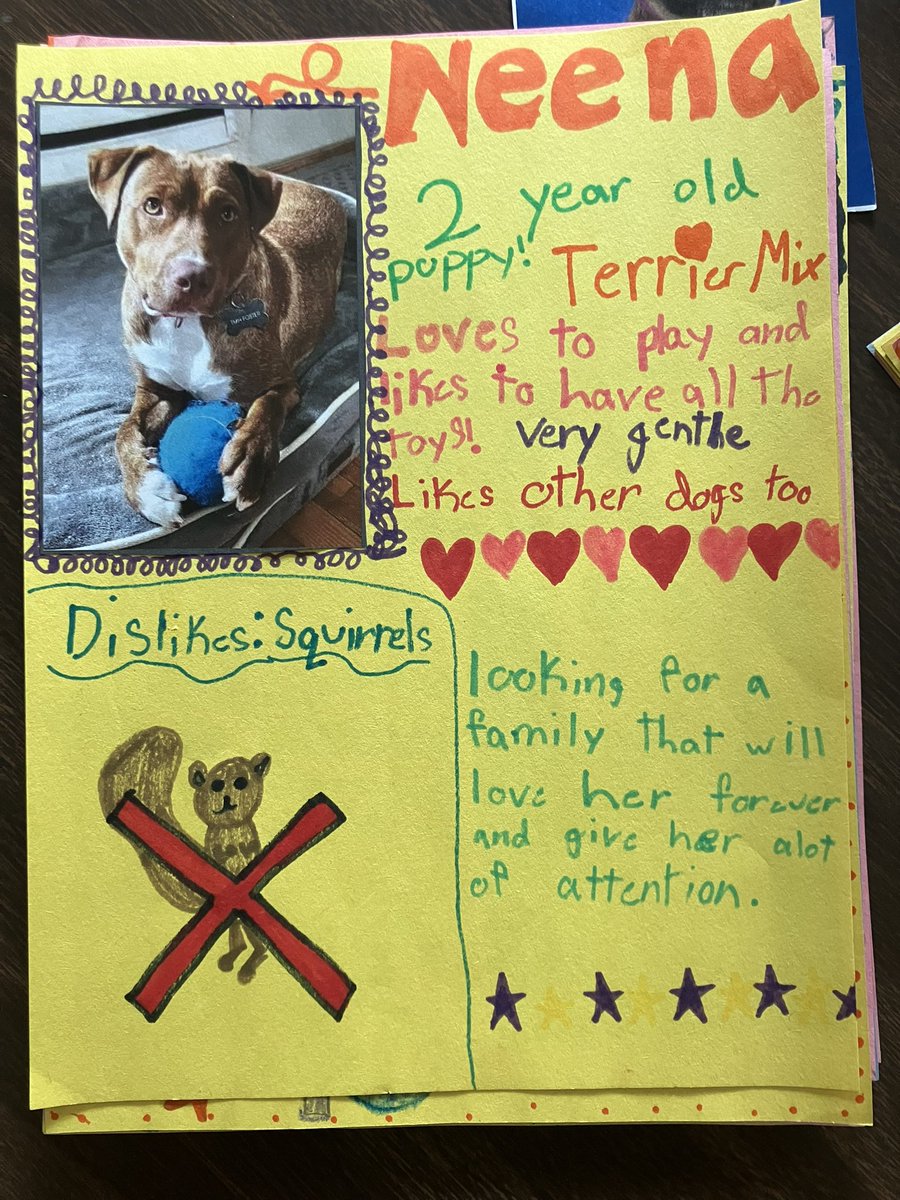 Neena
2 year old
puppy! Terrier Mix
Loves to play and
likes to have all the
toys!! very genthe
Likes other dogs too
Dislikes: Squirrels
looking for a
family that will
love her forever
and give her alot
of attention.